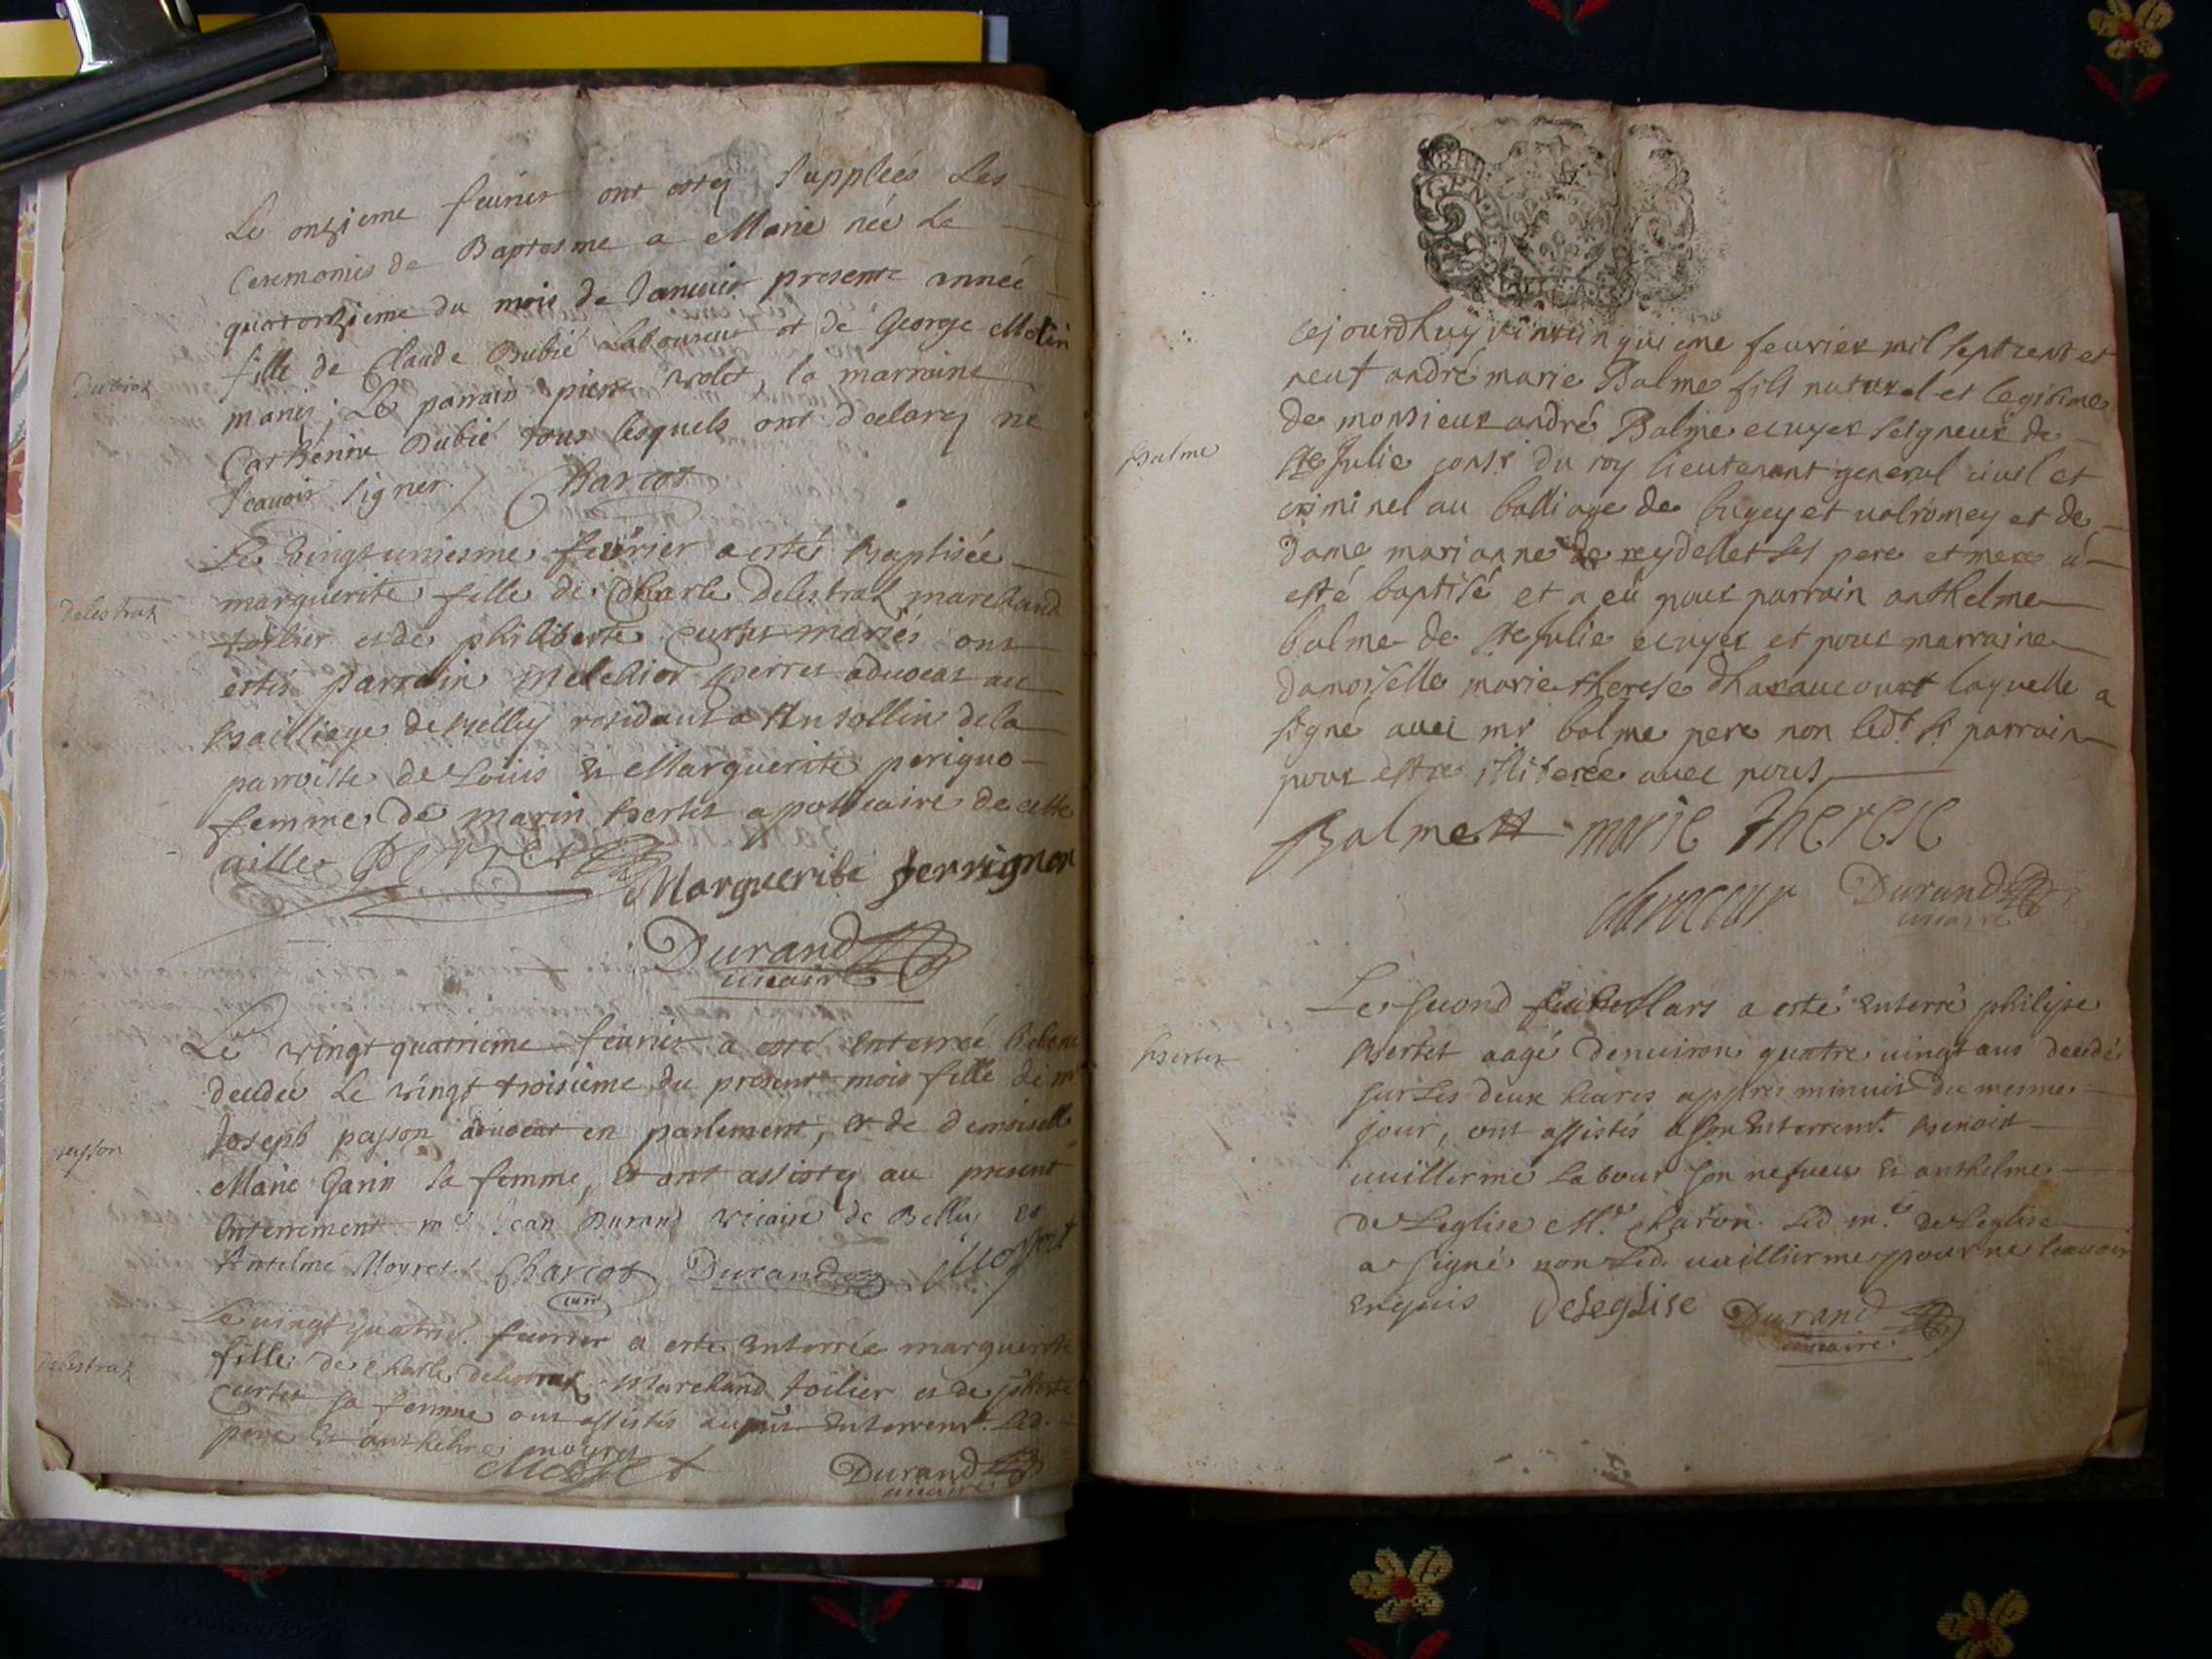 Le onzieme feurier ont estey supplées Les
Ceremonies de Baptesme a Marie née Le
quatorzieme du mois de Januier presente année
fille de Claude Dubié Laboureur et de George Molin
Dubiez
mariés; Le parrain pierre violet, la marraine
Catherine Dubié tous lesquels ont declarey ne
scauoir signer. Charcot
Le vingt uniesme feurier a estés baptisée
marguerite fille de Charle Delestraz marchand
Delestraz
toilier et de philiberte Curtet mariés ont
estés parrain Melchior perret aduocat au
bailliage de belley residant a Ansollin de la
parroisse de Loüis Et Marguerite perigno
femme de marin bertet apothicaire de cette
uille Perret
Marguerite perrignon
Durand
uicaire
Le vingt quatrieme feurier a esté enterrée
decedée Le vingt troisieme du present mois fille de mr
Joseph peysson aduocat en parlement, et de demoiselle
peysson
Marie Garin sa femme, et ont assistey au present
enterrement mre Jean Durand vicaire de Belley et
Antelme Moyret. Charcot Durand Moyret
curé
Le uingt quatrie. feurier a este enterrée marguerite
fille de Charle delestraz Marchand toilier et de phberte
Delestraz
Curtet sa femme ont assistés au pnt Enterremt. led.
pere Et anthelme moyret
Moyret Durand
uicaire
Cejourdhuy vintcinquieme feurier mil sept cent et
neuf andré marie Balme fils naturel et legitime
de monsieur andré Balme ecuyer seigneur de
Balme
Ste Julie consr du roy lieutenant general ciuil et
criminel au balliage de bugey et ualromey et de
dame marianne de reydellet ses pere et mere a
esté baptisé et a eü pour parrain anthelme
balme de Ste Julie ecuyer et pour marraine
damoiselle marie therese dharaucourt laquelle a
signé auec mr balme pere non ledt sr parrain
pour estre illiterée auec nous
Balme marie Therese
daracour Durand
uicaire
Le second Mars a esté Enterré philipe
Bertet aagé denuiron quatre uingt ans decedé
Bertet
sur les deux heures appres minuit du mesme
jour, ont assistés a son Enterremt. benoist
uuillerme Labour son nefueu Et anthelme
De Leglise Mr. charon. Led mr. de Leglise
a signé non Led. uuillierme pour ne scauoir
Enquis Deleglise Durand
uicaire